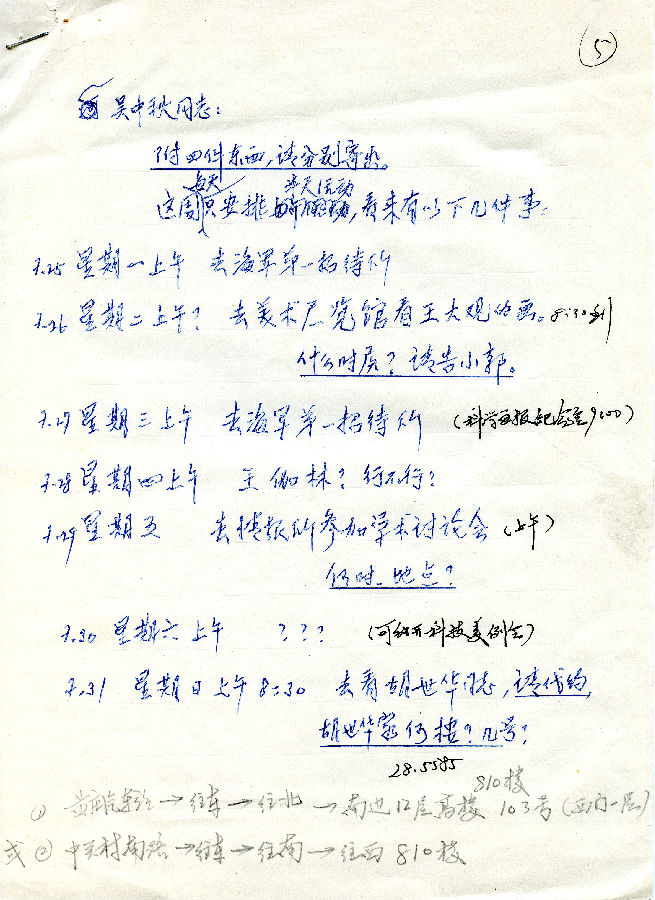 ⑤
吴中秋同志：
附四件东西，请分别寄出。
每天 步天运动
这周只安排，看来有以下几件事：
7.25 星期一上午 去海军第一招待所
7.26 星期二上午？ 去美术展览馆看王大观的画。8:30到
什么时候？请告小郭。
7.27 星期三上午 去海军第一招待所（科学画报纪念会9:00）
7.28 星期四上午 王伽林？行不行？
7.29 星期五 去情报所参加学术讨论会（上午）
何时、地点？
7.30 星期六上午 ？？？ （可能开科技美例会）
7.31 星期日上午8:30 去看胡世华同志，请代约，
胡世华家何楼？几号？
28.5585
810楼
① 黄庄汽车站→往东→往北→南边12层高楼 103号（西门一层）
或② 中关村南路→往东→往南→往西810楼